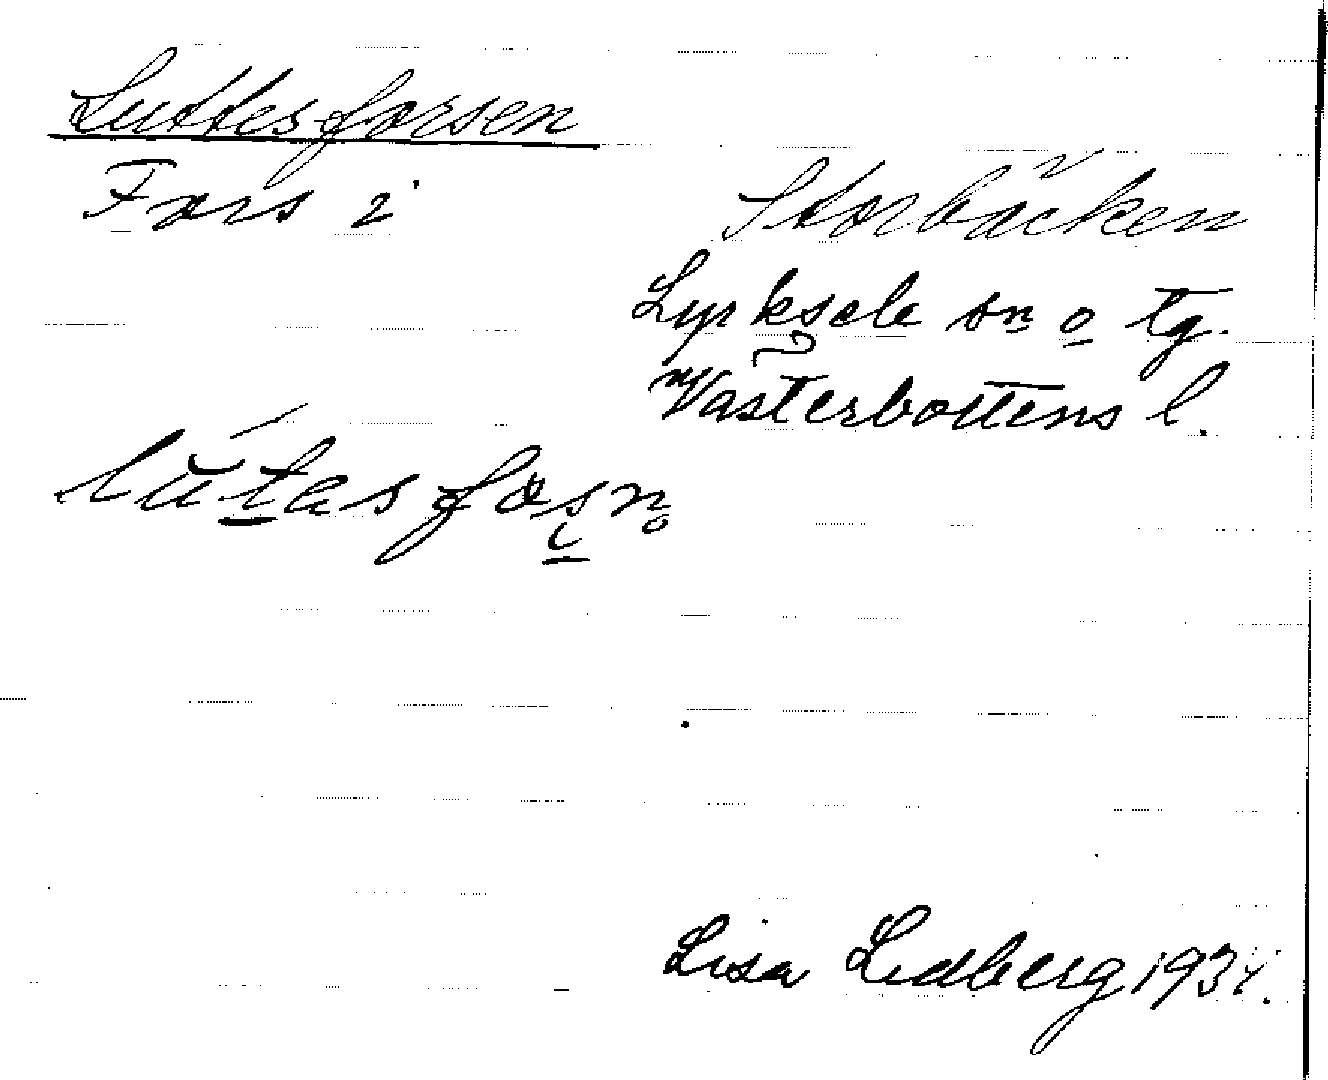 Luttesforsen
Fors i Storbäcken
Lycksele sn o tg.
Västerbottens l.
lŭtesfosn̥
Lisa Lidberg 1931.